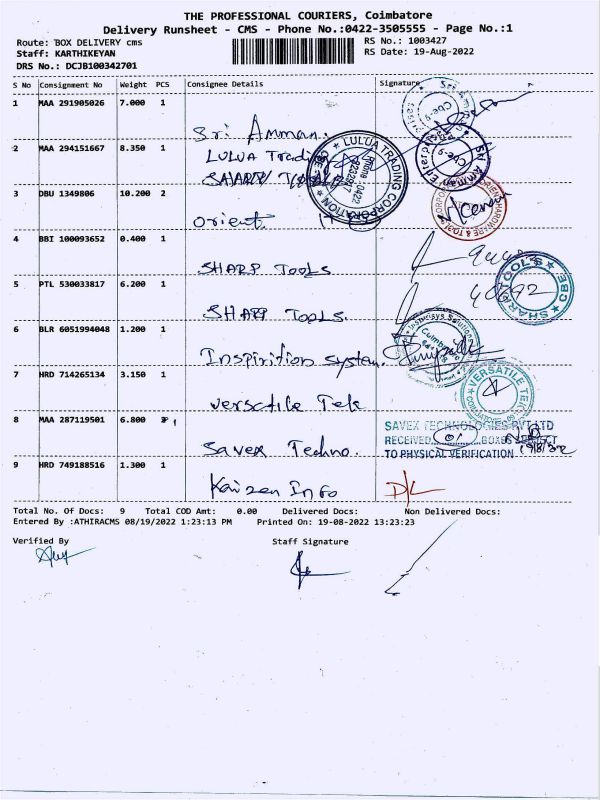 THE PROFESSIONAL COURIERS, Coimbatore
Delivery Runsheet - CMS - Phone No.:0422-3505555 - Page No.:1
Route: BOX DELIVERY cms RS No.: 1003427
Staff: KARTHIKEYAN RS Date: 19-Aug-2022
DRS No.: DCJB100342701
S No Consignment No Weight PCS Consignee Details Signature
1 MAA 291905026 7.000 1 Sri Amman.
2 MAA 294151667 8.350 1 LULUA Trading
SHARP Tools
LULUA TRADING CORPORATION
Phone : 0422
Sri Amman Enterprises
Cbe-9
3 DBU 1349806 10.200 2 Orient.
HARDWARE & TOOLS
4 BBI 100093652 0.400 1 SHARP TOOLS
5 PTL 530033817 6.200 1 SHARP TOOLS.
SHARP TOOLS CBE
6 BLR 6051994048 1.200 1 Inspirition system.
Inspirisys Solutions
Coimbatore
7 HRD 714265134 3.150 1 Versctile Tek
VERSATILE TEK
8 MAA 287119501 6.800 1 Savex Techno.
SAVEX TECHNOLOGIES PVT LTD
RECEIVED 01 BOXES SUBJECT
TO PHYSICAL VERIFICATION
9 HRD 749188516 1.300 1 Kaizen Info
Total No. Of Docs: 9 Total COD Amt: 0.00 Delivered Docs: Non Delivered Docs:
Entered By :ATHIRACMS 08/19/2022 1:23:13 PM Printed On: 19-08-2022 13:23:23
Verified By Staff Signature